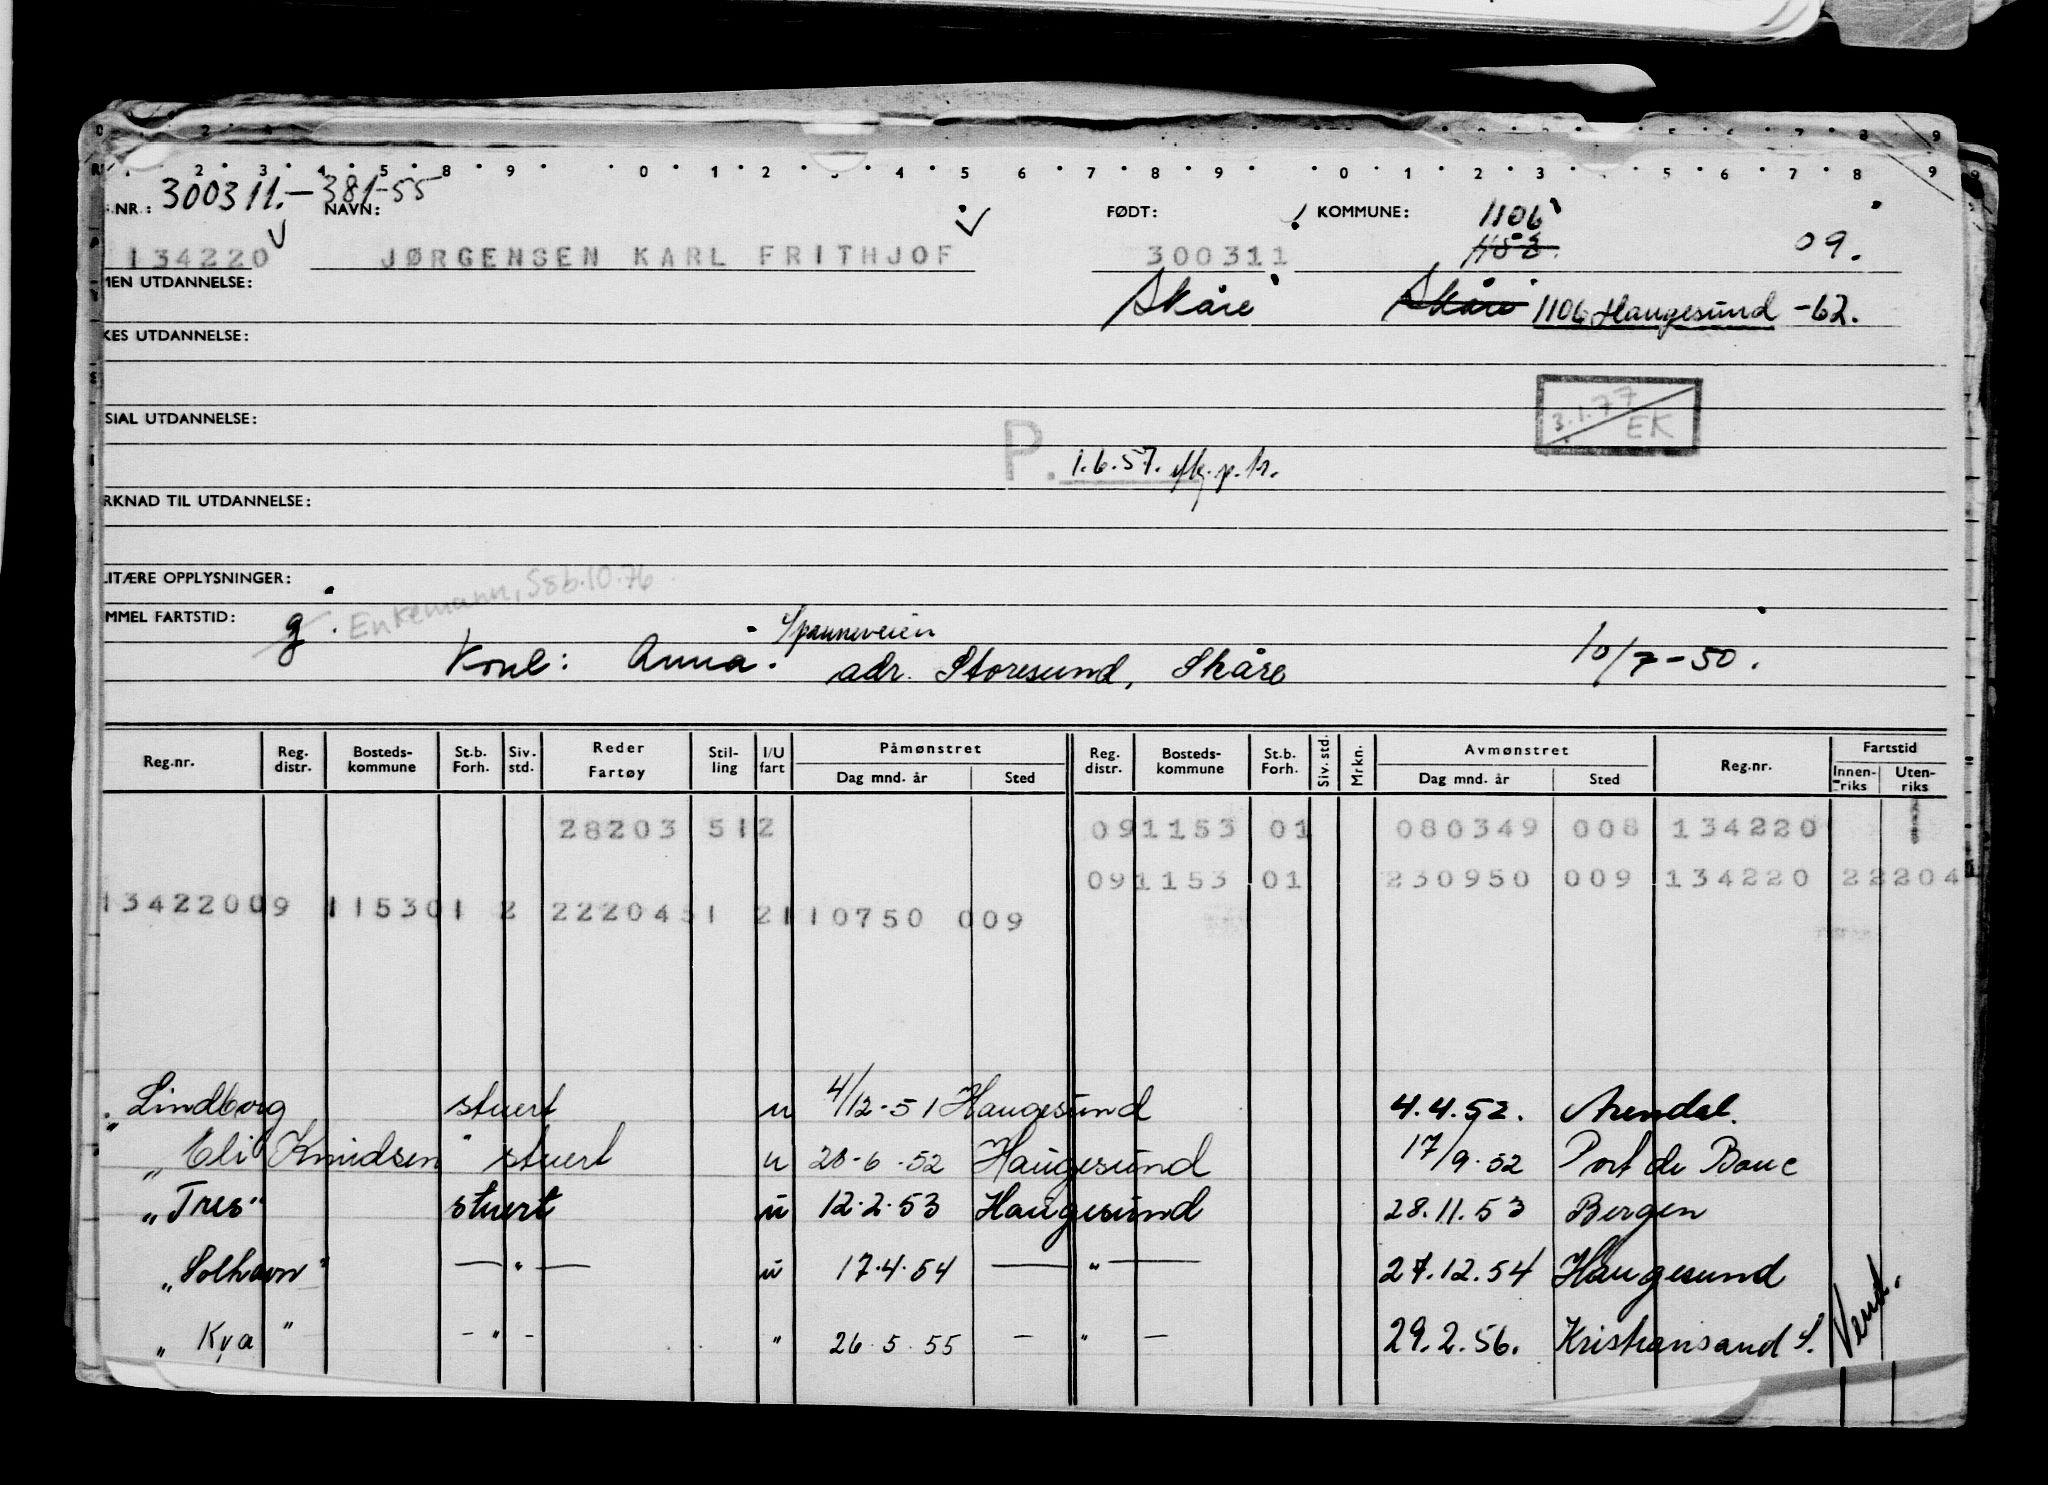 300311.-381-55
NR.: NAVN: FØDT: KOMMUNE: 1106
134220 JØRGENSEN KARL FRITHJOF 300311 1153 09.
MEN UTDANNELSE: Skåre Skåre 1106 Haugesund -62.
KES UTDANNELSE:
3.1.77
EK
SIAL UTDANNELSE:
P. 1.6.57.
RKNAD TIL UTDANNELSE:
LITÆRE OPPLYSNINGER:
MMEL FARTSTID: g. Enkemann, 10.76
Spanneveien
Kone: Anna. adr. Storesund, Skåre 10/7-50.
Reg.nr. Reg. distr. Bosteds-kommune St.b. Forh. Siv. std. Reder Fartøy Stil-ling I/U fart Påmønstret Reg. distr. Bosteds-kommune St.b. Forh. Siv. std. Mrkn. Avmønstret Reg.nr. Fartstid
Dag mnd. år Sted Dag mnd. år Sted Innen-riks Uten-riks
28203 512 091153 01 080349 008 134220
091153 01 230950 009 134220 22204
13422009 115301 2 2220451 2110750 009
"Lindborg stuert u 4/12-51 Haugesund 4.4.52. Arendal.
"Eli Knudsen" stuert u 28-6-52 Haugesund 17/9.52 Port de Bouc
"Tres" stuert u 12.2.53 Haugesund 28.11.53 Bergen
"Solhavn" — " — u 17.4.54 — " — 27.12.54 Haugesund
"Kya" - " - " 26.5.55 - " - 29.2.56. Kristiansand S.
Vend.